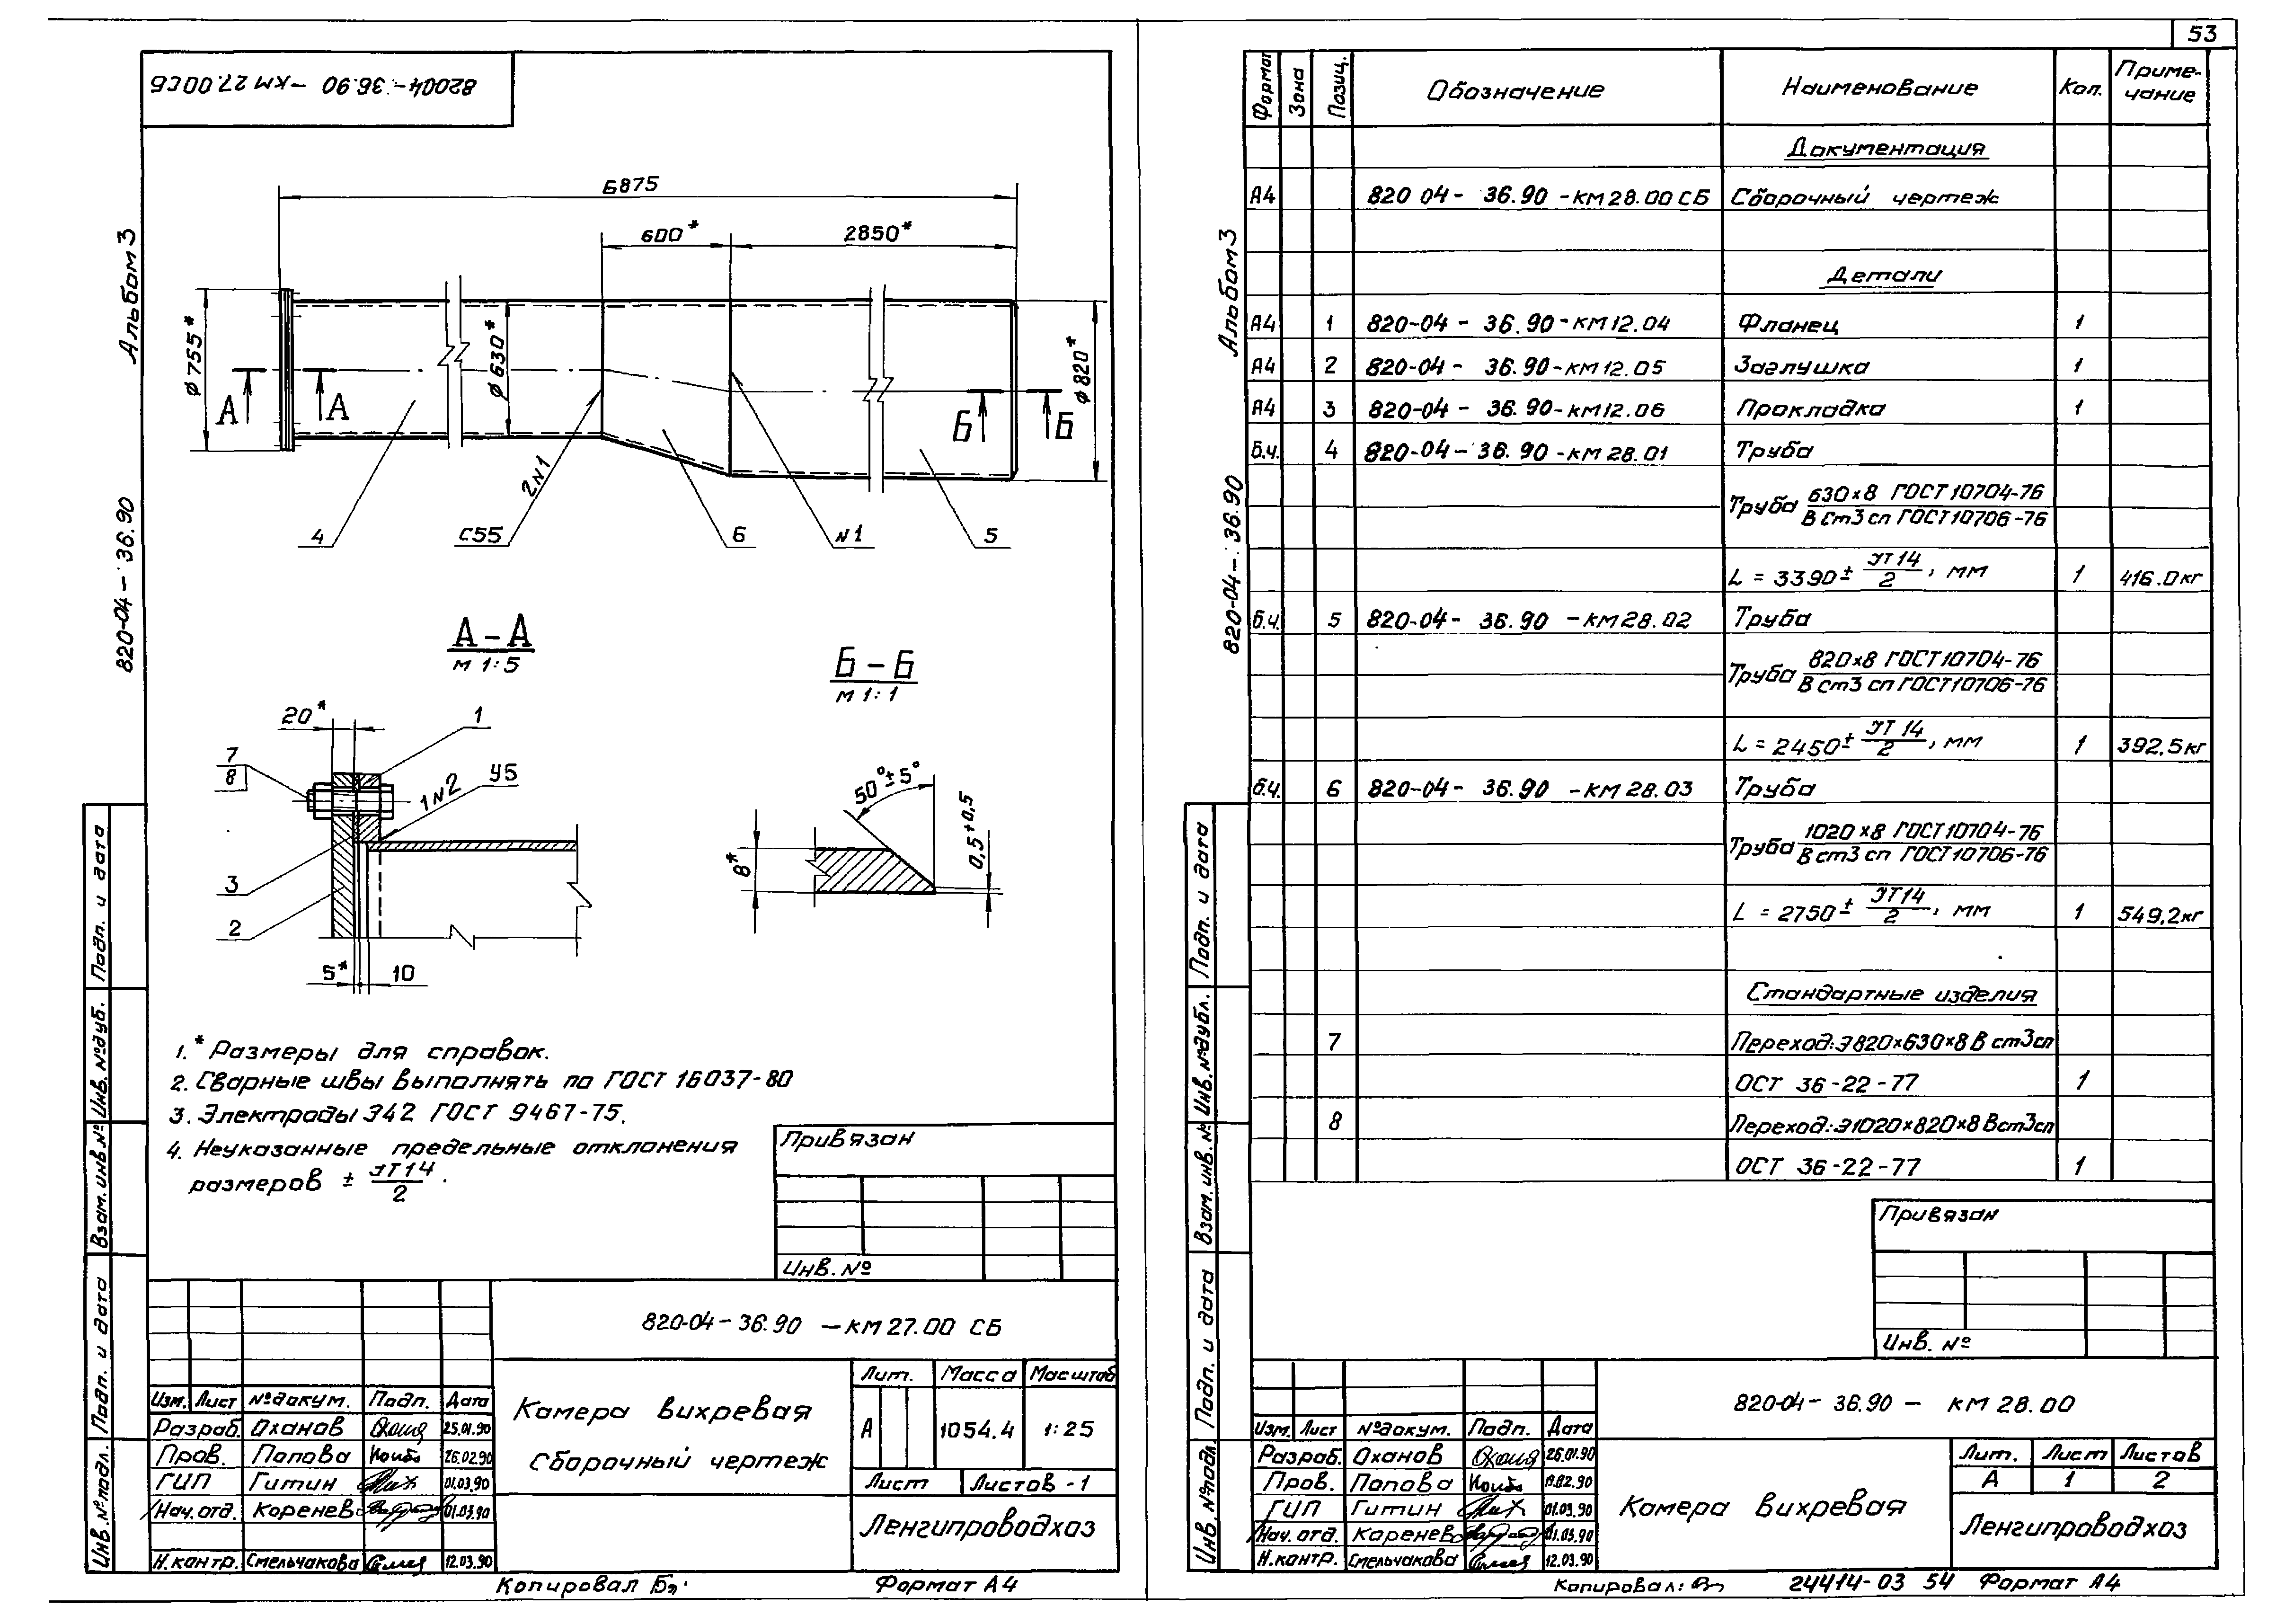 82004-36.90 -КМ 27.00СБ
Альбом 3
820-04-36.90
6875
600*
2850*
ф 755*
ф 630*
ф 820*
А
А
Б
Б
4
С55
2№1
6
№1
5
А-А
М 1:5
Б-Б
М 1:1
20*
1
7
8
1№2
У5
3
2
5*
10
50°±5°
8*
0,5+0,5
1.* Размеры для справок.
2. Сварные швы выполнять по ГОСТ 16037-80
3. Электроды Э42 ГОСТ 9467-75.
4. Неуказанные предельные отклонения
размеров ± JT14/2.
Привязан
Инв. №
820-04-36.90 -КМ 27.00 СБ
Камера вихревая
Сборочный чертеж
Лит. Масса Масштаб
А 1054.4 1:25
Лист Листов -1
Ленгипроводхоз
Изм. Лист №докум. Подп. Дата
Разраб. Оханов 25.01.90
Пров. Попова 26.02.90
ГИП Гитин 01.03.90
Нач. отд. Коренев 01.03.90
Н.контр. Смельчакова 12.03.90
Подп. и дата
Инв. №дубл.
Взам. инв №
Подп. и дата
Инв. №подл.
Копировал
Формат А4
53
Альбом 3
820-04-36.90
Формат Зона Позиц. Обозначение Наименование Кол. Приме-
чание
Документация
А4 820 04- 36.90 -КМ 28.00 СБ Сборочный чертеж
Детали
А4 1 820-04- 36.90-КМ 12.04 Фланец 1
А4 2 820-04- 36.90-КМ 12.05 Заглушка 1
А4 3 820-04- 36.90-КМ 12.06 Прокладка 1
Б.ч. 4 820-04-36.90-КМ 28.01 Труба
Труба 630×8 ГОСТ 10704-76
В Ст3 сп ГОСТ 10706-76
L = 3390 ± JT14/2, мм 1 416.0кг
Б.ч. 5 820-04- 36.90 -КМ 28.02 Труба
Труба 820×8 ГОСТ 10704-76
В Ст3 сп ГОСТ 10706-76
L = 2450 ± JT14/2, мм 1 392,5кг
Б.ч. 6 820-04- 36.90 -КМ 28.03 Труба
Труба 1020×8 ГОСТ 10704-76
В ст3 сп ГОСТ 10706-76
L = 2750 ± JT14/2, мм 1 549,2кг
Стандартные изделия
7 Переход: Э820×630×8 В ст3сп
ОСТ 36-22-77 1
8 Переход: Э1020×820×8 Вст3сп
ОСТ 36-22-77 1
Привязан
Инв. №
820-04- 36.90 - КМ 28.00
Изм. Лист №докум. Подп. Дата
Разраб. Оханов 26.01.90
Пров. Попова
ГИП Гитин 01.03.90
Нач. отд. Коренев 01.03.90
Н.контр. Смельчакова 12.03.90
Камера вихревая
Лит. Лист Листов
А 1 2
Ленгипроводхоз
Подп. и дата
Инв. №дубл.
Взам. инв. №
Подп. и дата
Инв. №подл.
Копировал:
24414-03 54 Формат А4